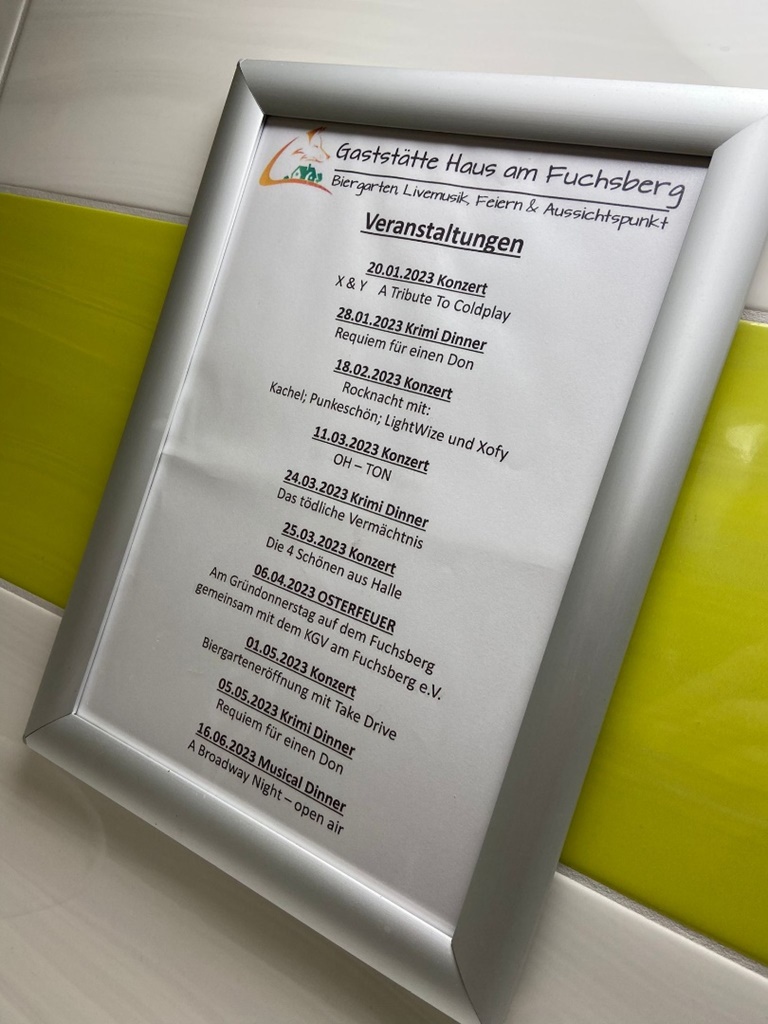 Gaststätte Haus am Fuchsberg
Biergarten, Livemusik, Feiern & Aussichtspunkt
Veranstaltungen
20.01.2023 Konzert
X & Y A Tribute To Coldplay
28.01.2023 Krimi Dinner
Requiem für einen Don
18.02.2023 Konzert
Rocknacht mit:
Kachel; Punkeschön; LightWize und Xofy
11.03.2023 Konzert
OH – TON
24.03.2023 Krimi Dinner
Das tödliche Vermächtnis
25.03.2023 Konzert
Die 4 Schönen aus Halle
06.04.2023 OSTERFEUER
Am Gründonnerstag auf dem Fuchsberg
gemeinsam mit dem KGV am Fuchsberg e.V.
01.05.2023 Konzert
Biergarteneröffnung mit Take Drive
05.05.2023 Krimi Dinner
Requiem für einen Don
16.06.2023 Musical Dinner
A Broadway Night – open air